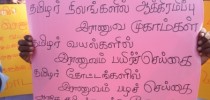 தமிழர் நிலங்களை ஆக்கிரமிப்பு
இராணுவ முகாம்கள்
தமிழர் வயல்களில்
இராணுவம் பயிர் செய்கை
தமிழர் தோட்டங்களில்
இராணுவம் பயிர் செய்கை